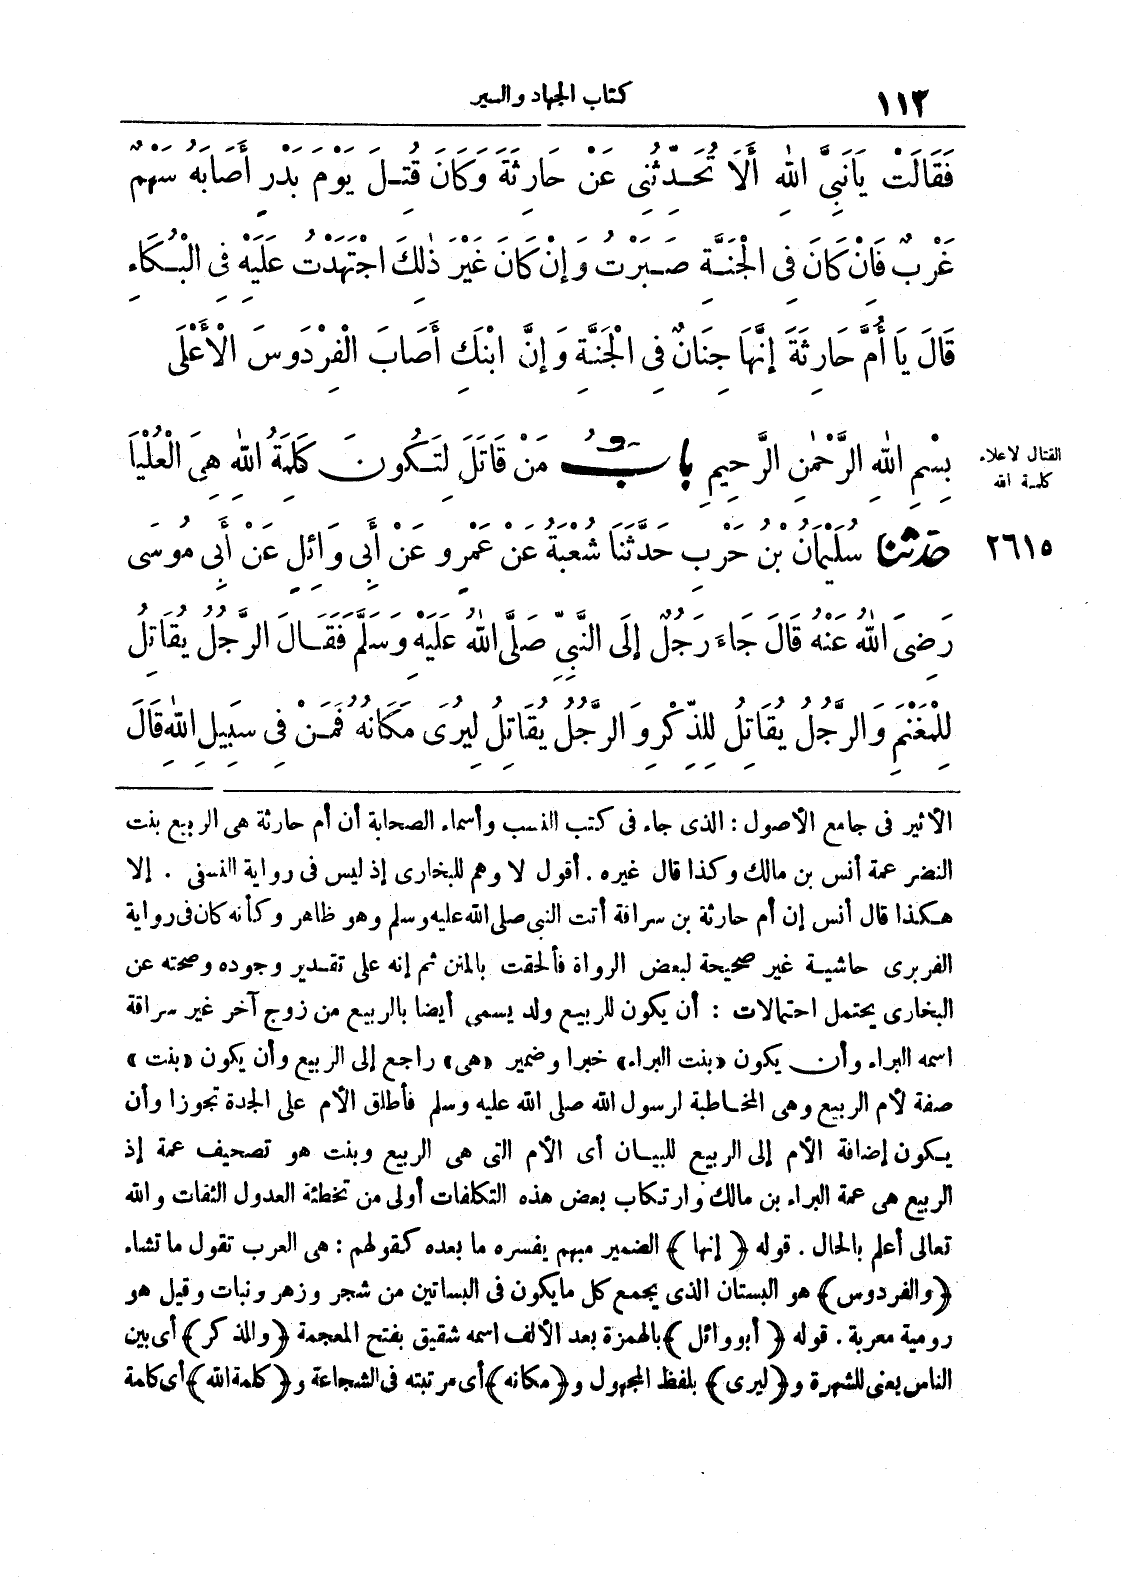 ١١٣ كتاب الجهاد والسير
فَقَالَتْ يَانَبِيَّ اللهِ أَلَا تُحَدِّثُنِى عَنْ حَارِثَةَ وَكَانَ قُتِلَ يَوْمَ بَدْرٍ أَصَابَهُ سَهْمٌ
غَرْبٌ فَانْ كَانَ فِى الْجَنَّةِ صَبَرْتُ وَإِنْ كَانَ غَيْرَ ذٰلِكَ اجْتَهَدْتُ عَلَيْهِ فِى الْبُكَاءِ
قَالَ يَا أُمَّ حَارِثَةَ إِنَّهَا جِنَانٌ فِى الْجَنَّةِ وَإِنَّ ابْنَكِ أَصَابَ الْفِرْدَوْسَ الْأَعْلَى
بِسْمِ اللهِ الرَّحْمٰنِ الرَّحِيمِ بابُ مَنْ قَاتَلَ لِتَكُونَ كَلِمَةُ اللهِ هِيَ الْعُلْيَا
القتال لاعلاء
كلمة الله
٢٦١٥ حَدَّثَنَا سُلَيْمَانُ بْنُ حَرْبٍ حَدَّثَنَا شُعْبَةُ عَنْ عَمْرٍو عَنْ أَبِى وَائِلٍ عَنْ أَبِى مُوسَى
رَضِىَ اللهُ عَنْهُ قَالَ جَاءَ رَجُلٌ إِلَى النَّبِيِّ صَلَّى اللهُ عَلَيْهِ وَسَلَّمَ فَقَالَ الرَّجُلُ يُقَاتِلُ
لِلْمَغْنَمِ وَالرَّجُلُ يُقَاتِلُ لِلذِّكْرِ وَالرَّجُلُ يُقَاتِلُ لِيُرَى مَكَانُهُ فَمَنْ فِى سَبِيلِ اللهِ قَالَ
الأثير فى جامع الأصول : الذى جاء فى كتب النسب وأسماء الصحابة أن أم حارثة هى الربيع بنت
النضر عمة أنس بن مالك وكذا قال غيره . أقول لا وهم للبخارى إذ ليس فى رواية النسفى . إلا
هكذا قال أنس إن أم حارثة بن سراقة أتت النبى صلى الله عليه وسلم وهو ظاهر وكأنه كان فى رواية
الفربرى حاشية غير صحيحة لبعض الرواة فألحقت بالمتن ثم إنه على تقدير وجوده وصحته عن
البخارى يحتمل احتمالات : أن يكون للربيع ولد يسمى أيضا بالربيع من زوج آخر غير سراقة
اسمه البراء وأن يكون «بنت البراء» خبرا وضمير «هى» راجع إلى الربيع وأن يكون «بنت»
صفة لأم الربيع وهى المخاطبة لرسول الله صلى الله عليه وسلم فأطلق الأم على الجدة تجوزا وأن
يكون إضافة الأم إلى الربيع للبيان أى الأم التى هى الربيع وبنت هو تصحيف عمة إذ
الربيع هى عمة البراء بن مالك وارتكاب بعض هذه التكلفات أولى من تخطئة العدول الثقات والله
تعالى أعلم بالحال . قوله ﴿ إنها ﴾ الضمير مبهم يفسره ما بعده كقولهم : هى العرب تقول ما تشاء
﴿ والفردوس ﴾ هو البستان الذى يجمع كل مايكون فى البساتين من شجر وزهر ونبات وقيل هو
رومية معربة . قوله ﴿ أبو وائل ﴾ بالهمزة بعد الألف اسمه شقيق بفتح المعجمة ﴿ والمذكر ﴾ أى بين
الناس يعنى للشهرة و﴿ ليرى ﴾ بلفظ المجهول و﴿ مكانه ﴾ أى مرتبته فى الشجاعة و﴿ كلمة الله ﴾ أى كلمة